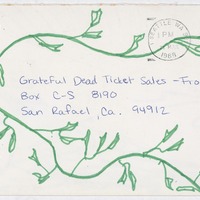 SEATTLE
PM
1985
Grateful Dead Ticket Sales - Fro
Box C-S 8190
San Rafael, Ca. 94912